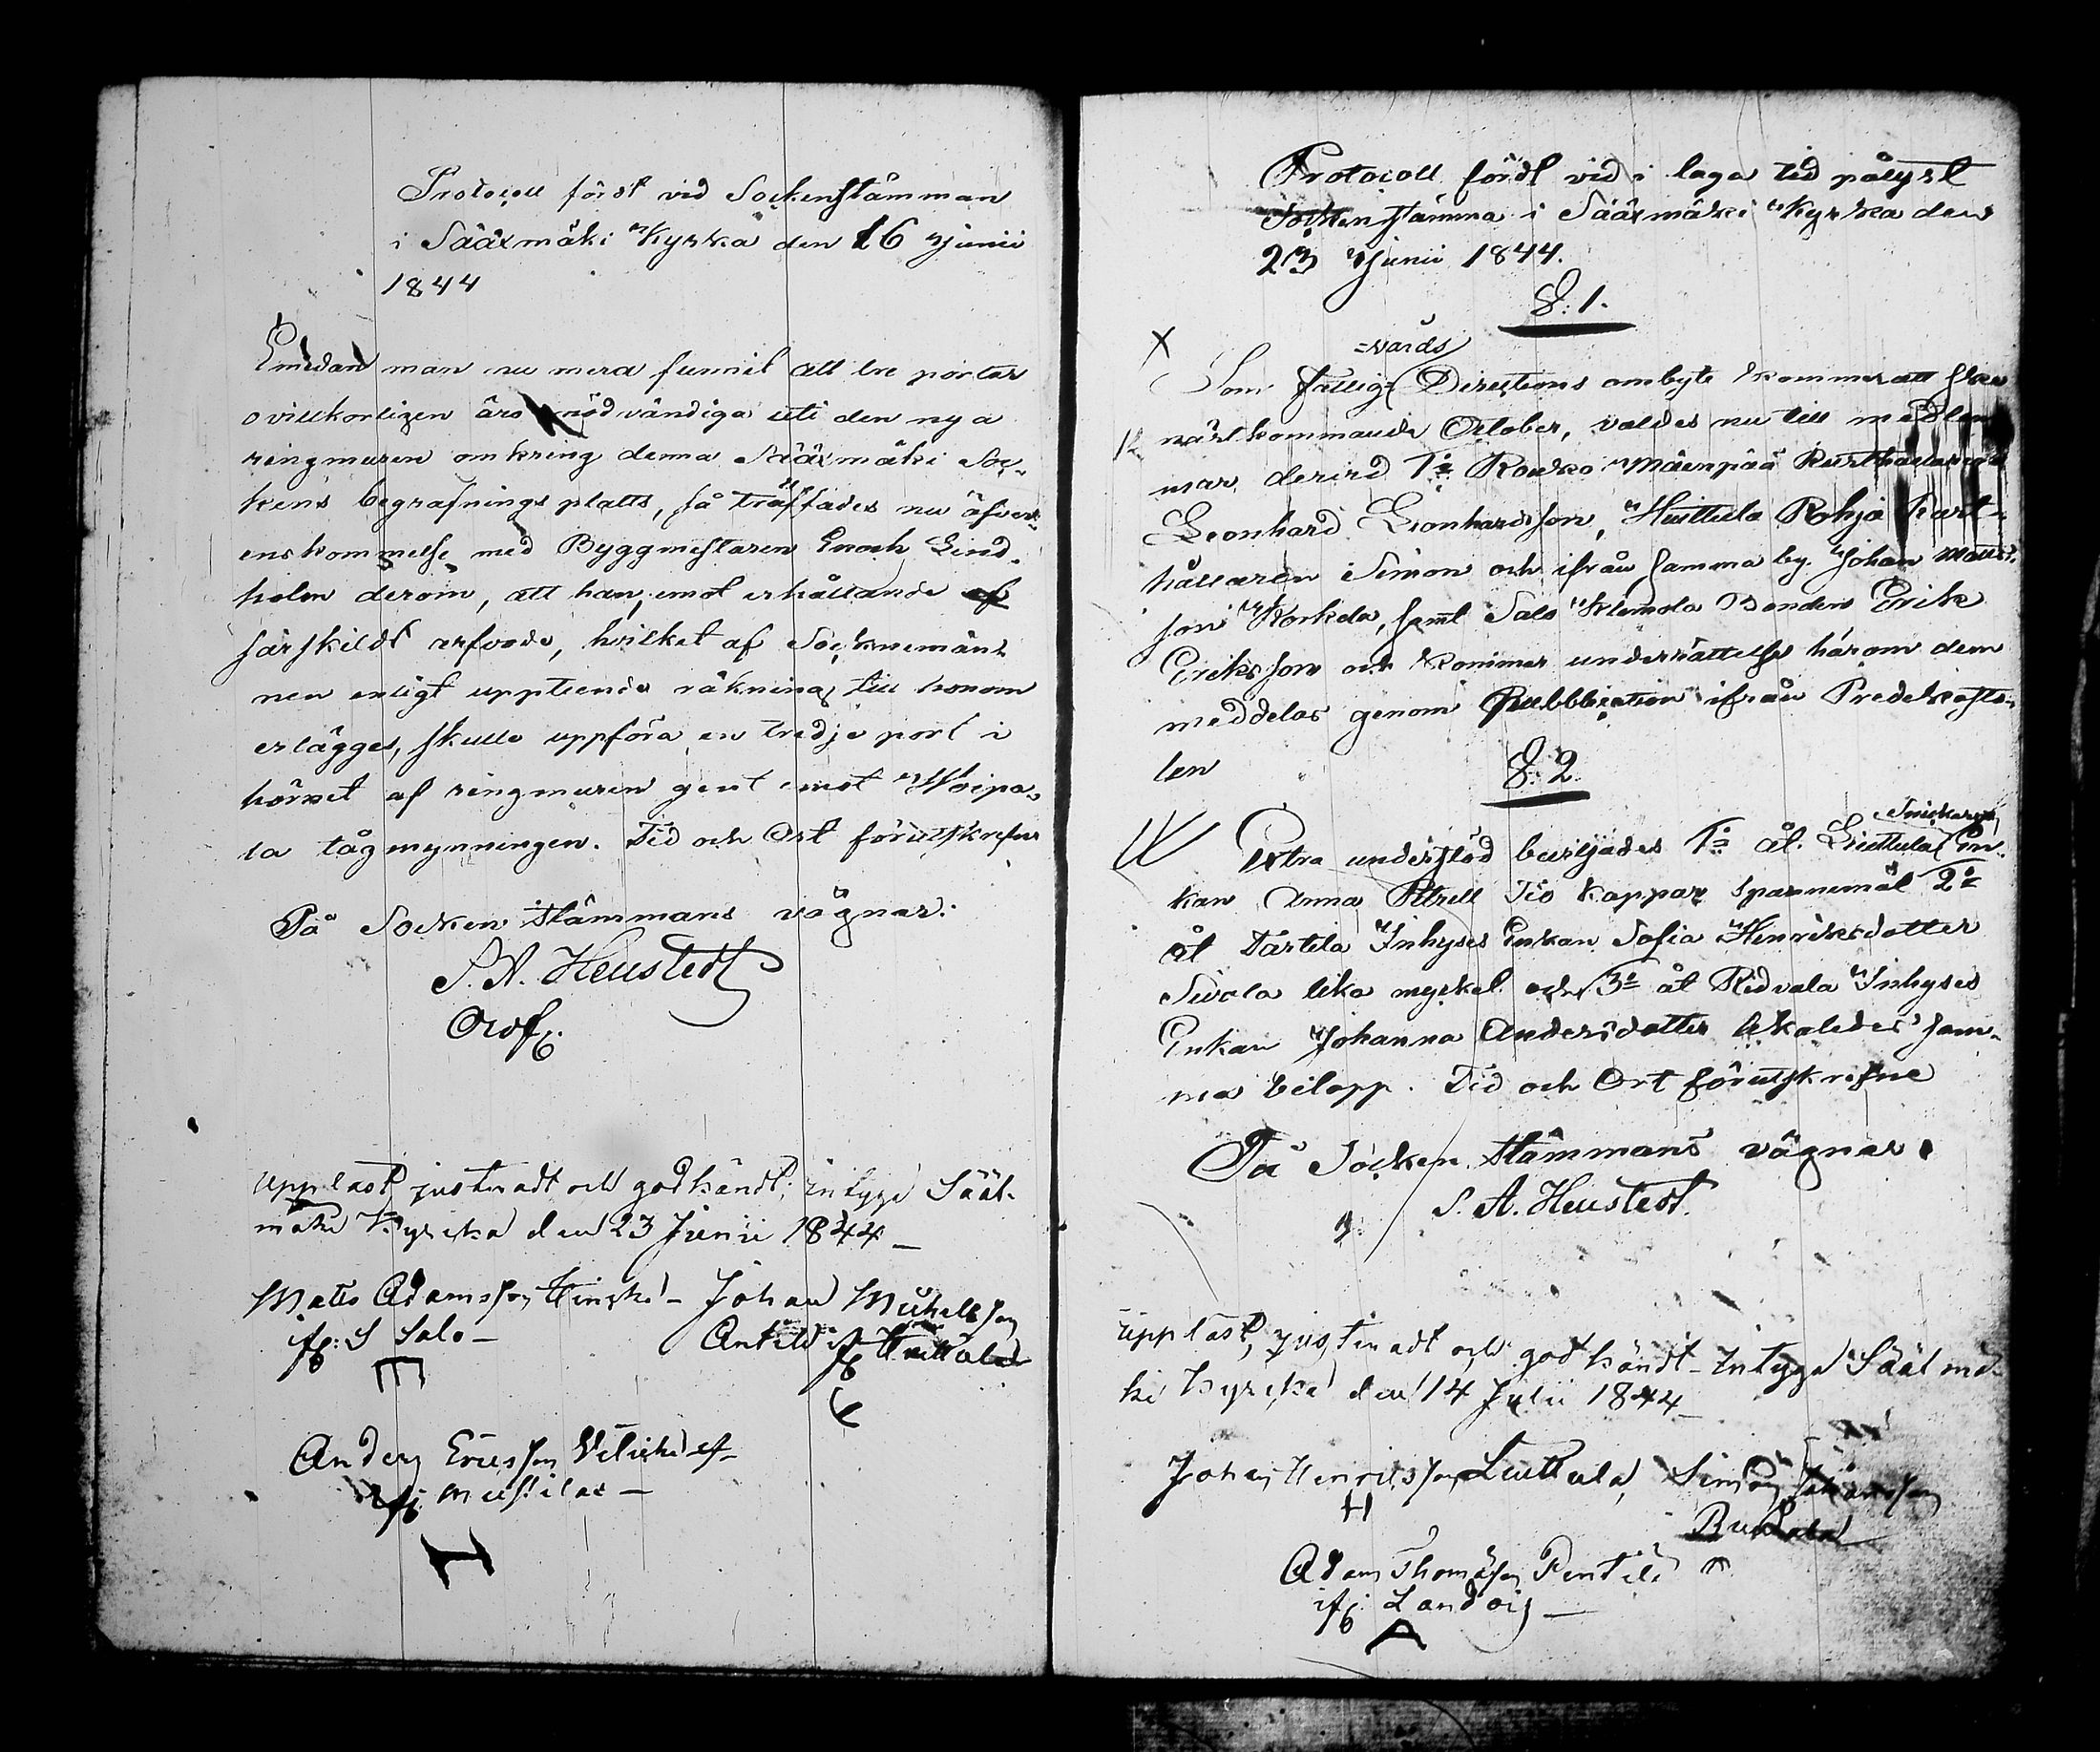 Protocoll fördt vid Sockenstämman
i Sääxmäki Kyrka den 16 Junii
1844
Emedan man nu mera funnit att tre portar
ovillkorligen äro nödvändiga uti den nya
ringmuren omkring denna Sääxmäki Soc-
kens begrafnings platts, så träffades nu öfver-
enskommelse med Byggmestaren Enoch Lind-
holm derom, att han, emot erhållande af
särskildt arfvode, hvilket af Socknemän-
nen enligt uppteende räkning till honom
erlägges, skulle uppföra en tredje port i
hörnet af ringmuren gent emot Woipa-
la tågmynningen. Tid och Ort förutskrefne
På Socken Stämmans vägnar:
S. A. Heustedt
Ordf.
Uppläst, justeradt och godkändt; intyga Sääx-
mäki Kyrcka den 23 Junii 1844
Matts Adamsson – Johan Michelsson
ifr: S Salo – Antila ifr
Anders Ericsson
ifr Mustila –
Protocoll fördt vid i laga tid pålyst
Sockenstämma i Sääxmäki Kyrka den
23 Junii 1844.
§. 1.
=vårds
Som Fattig Directions ombyte kommer att ske
nästkommande October, valdes nu till medlem-
mar derird 1:o Rouko Mäenpää Rusthållaren
Leonhard Leonhardsson, Huittula Rohja Rust-
hållaren Simon och ifrån samma by Johan Matts-
son Korkela, samt Salo Klemola Bonden Erik
Eriksson och kommer underrättelse härom dem
meddelas genom Pubblication ifrån Predikosto-
len
§. 2.
Snickare
Extra understöd beviljades 1:o åt Liuttula En-
kan Anna Petrell Tio kappar spannemål 2:o
åt Tarttila Inhyses Enkan Sofia Henriksdotter
Sivola lika myckel och 3:o åt Ridvala Inhyses
Enkan Johanna Andersdotter likaledes sam-
ma belopp. Tid och Ort förutskrefne
På Socken Stämmans vägnar
S. A. Heustedt.
Uppläst, justeradt och godkändt – Intyga Sääxmä-
ki Kyrcka den 14 Julii 1844 –
Johan Henricsson Liuttula, Simon Johansson
Adam Thomasson Pentilä
ifr